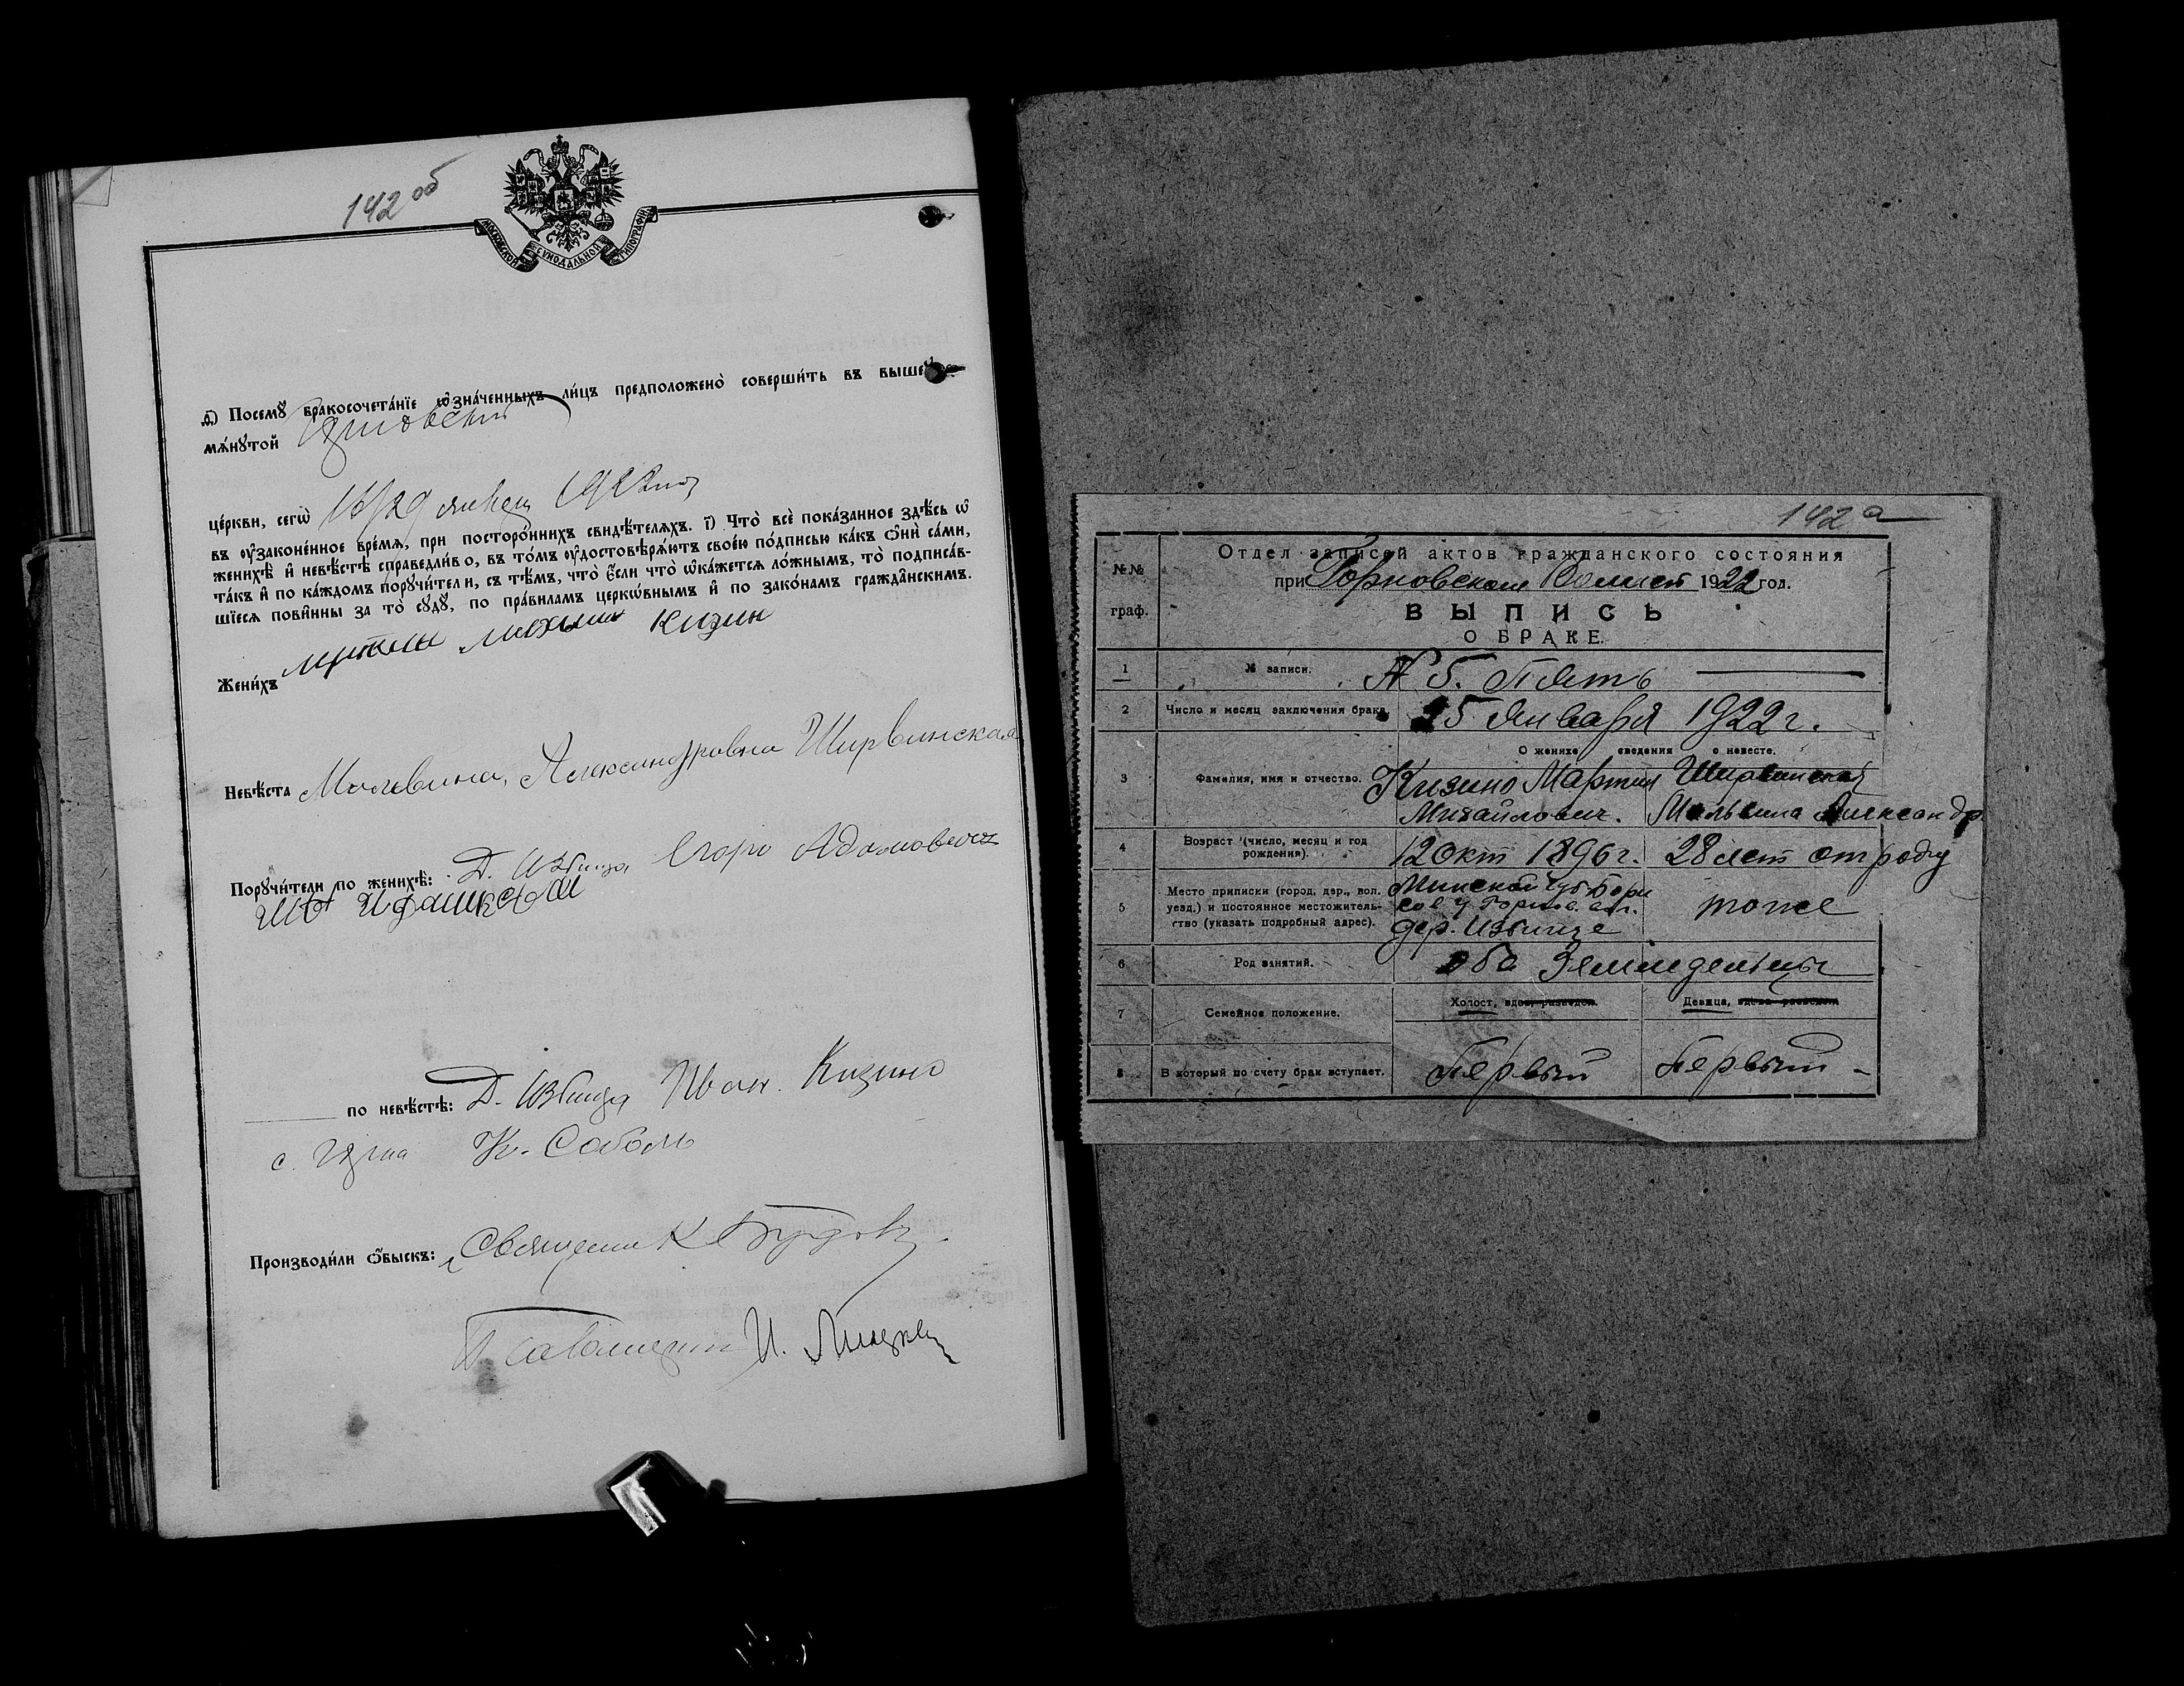 142 об
МОСКОВСКОЙ СѴНОДАЛЬНОЙ ТИПОГРАФІИ
Посемꙋ̀ бракосочета́нїе ѡ҆зна́ченныхъ ли́цъ предположено̀ соверши́ть въ вышеꙋпо-
мѧ́нꙋтой
це́ркви, сегѡ̀ 16/29 января 1922 года
въ ᲂу҆законе́нное вре́мѧ, при посторо́ннихъ свидѣ́телѧхъ. і҃) Что̀ всѐ пока́занное здѣ́сь ѡ҆
женихѣ̀ и҆ невѣ́стѣ справедли́во, въ то́мъ ᲂу҆достовѣрѧ́ютъ свое́ю по́дписью ка́къ ѻ҆нѝ са́ми,
та́къ и҆ по ка́ждомъ порꙋчи́тели, съ тѣ́мъ, что̀ є҆́сли что̀ ѡ҆ка́жетсѧ ло́жнымъ, то̀ подписа́в-
шїесѧ пови́нны за то̀ сꙋдꙋ̀, по пра́виламъ церко́внымъ и҆ по зако́намъ гражда́нскимъ.
Жени́хъ Кизин
Невѣ́ста Мальвина Александровна Ширвинская
Порꙋчи́тели по женихѣ̀: Д. Избища Егоръ Адамовичъ
по невѣ́стѣ: Д. Избища Иван Кизино
с. К. Соболь
Производи́ли ѻ҆́быскъ: Священник
Псаломщик И.
142 а
№№ граф.
Отдел записей актов гражданского состояния
при Горновском 1922 год.
ВЫПИСЬ
О БРАКЕ.
1 № записи. № 5. Пять
2 Число и месяц заключения брака. 25 Января 1922 г.
О женихе сведения о невесте.
3 Фамилия, имя и отчество. Кизино Мартин Ширвинская
Михайлович. Мальвина Александр
4 Возраст (число, месяц и год рождения). 12 Окт 1896 г. 28 лет от роду
5 Место приписки (город, дер., вол. уезд,) и постоянное местожительство (указать подробный адрес). Минской губ Бори
сов у вол. тоже
дер. Избище
6 Род занятий. оба Земледельцы
7 Семейное положение. Холост, вдов, разведен. Девица, вдова
8 В который по счету брак вступает. Первый Первый